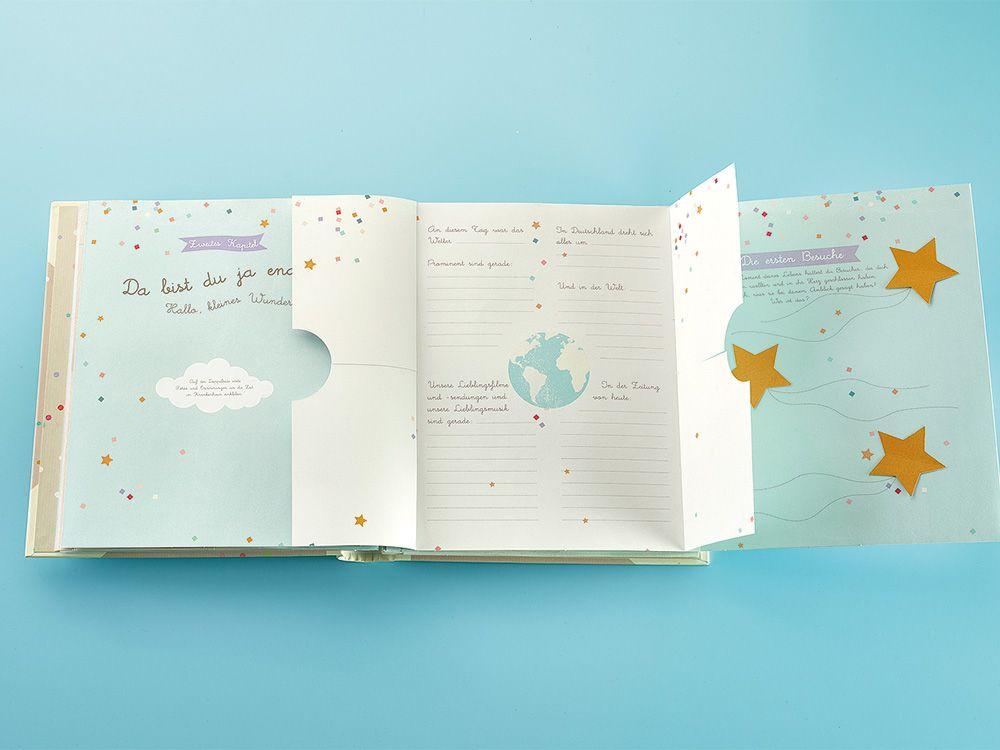 Zweites Kapitel
Da bist du ja end
Hallo, kleines Wunder
Auf der Doppelseite viele
Fotos und Erinnerungen an die Zeit
im Krankenhaus einkleben.
An diesem Tag war das
Wetter
Prominent sind gerade:
Unsere Lieblingsfilme
und -sendungen und
unsere Lieblingsmusik
sind gerade:
In Deutschland dreht sich
alles um
Und in der Welt:
In der Zeitung
von heute:
Die ersten Besuche
deines Lebens hattest du Besucher, die dich
wollten und in ihr Herz geschlossen haben.
was sie bei deinem Anblick gesagt haben?
Wer ist das?